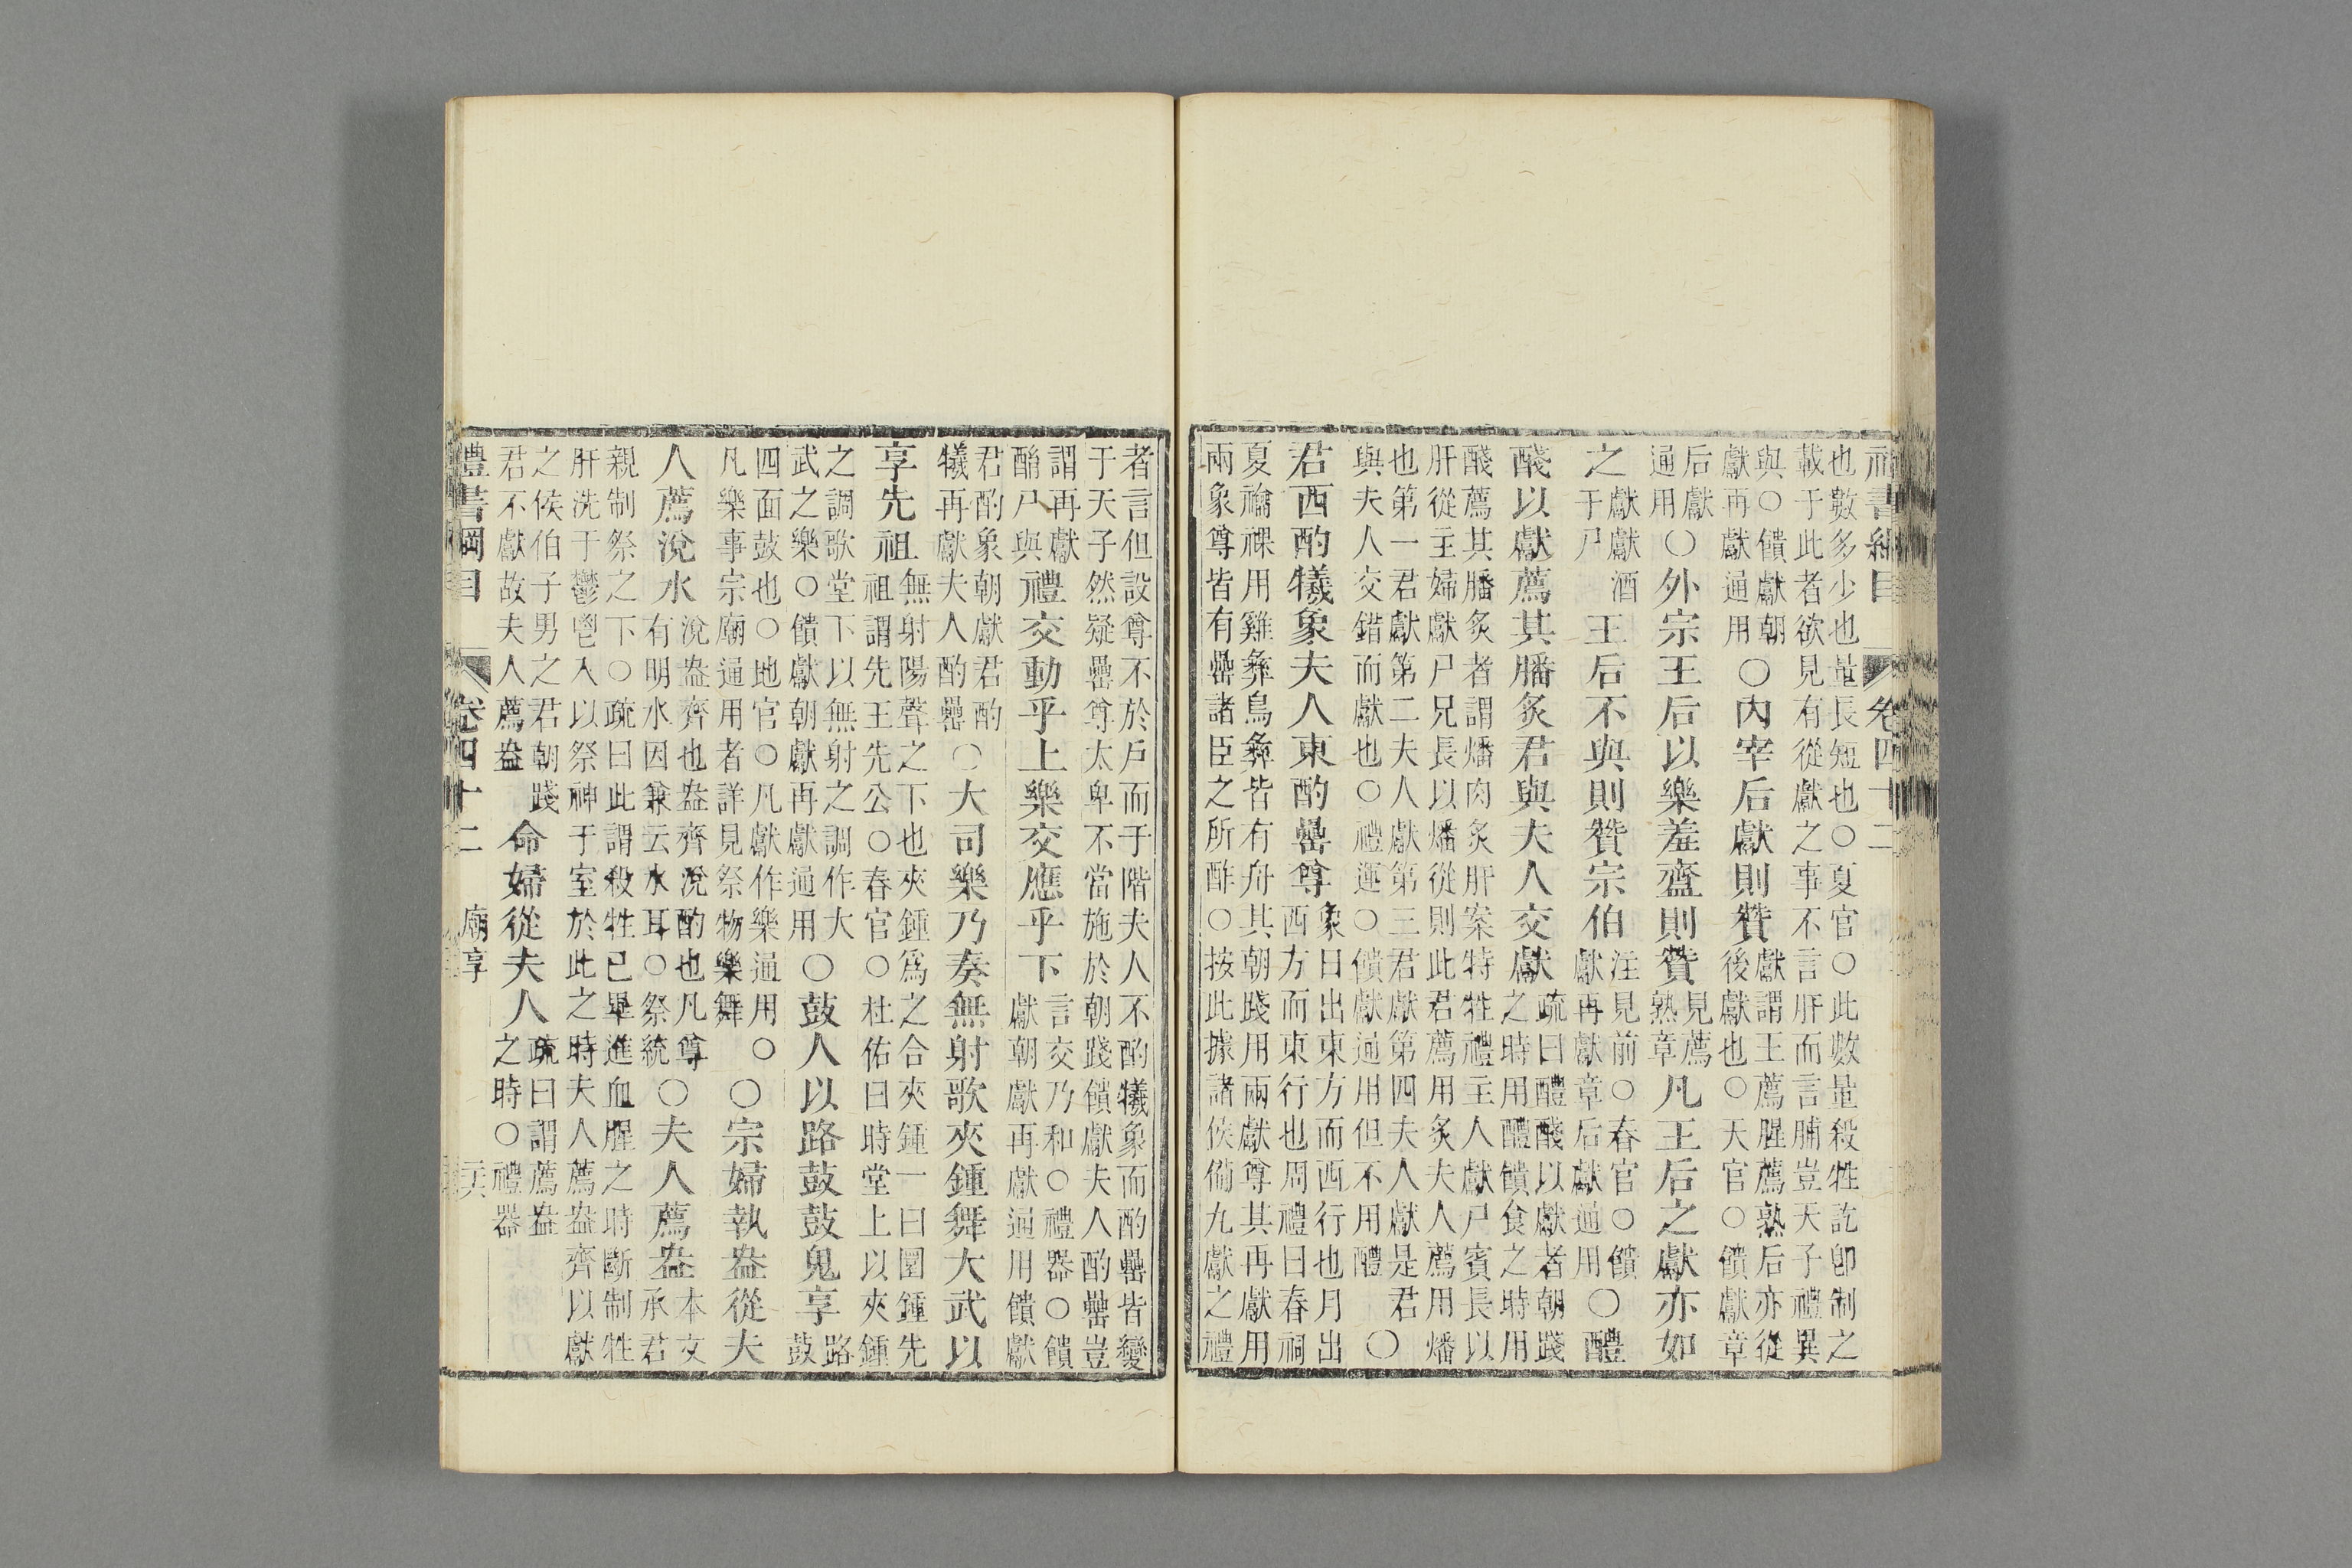 禮書綱目　卷四十二
也數多少也量長短也○夏官○此數量殺牲訖卽制之
載于此者欲見有從獻之事不言肝而言脯豈天子禮異
與○饋獻朝
獻再獻通用
○內宰后獻則贊
獻謂王薦腥薦熟后亦從
後獻也○天官○饋獻章
后獻
通用
○外宗王后以樂羞齍則贊
見薦
熟章
凡王后之獻亦如
之
獻獻酒
于尸
王后不與則贊宗伯
注見前○春官○饋
獻再獻章后獻通用
○醴
醆以獻薦其膰炙君與夫人交獻
疏曰醴醆以獻者朝踐
之時用醴饋食之時用
醆薦其膰炙者謂燔肉炙肝案特牲禮主人獻尸賓長以
肝從主婦獻尸兄長以燔從則此君薦用炙夫人薦用燔
也第一君獻第二夫人獻第三君獻第四夫人獻是君
與夫人交錯而獻也○禮運○饋獻通用但不用醴
○
君西酌犧象夫人東酌罍尊
象日出東方而西行也月出
西方而東行也周禮曰春祠
夏禴祼用雞彝鳥彝皆有舟其朝踐用兩獻尊其再獻用
兩象尊皆有罍諸臣之所酢○按此據諸侯備九獻之禮
者言但設尊不於戶而于階夫人不酌犧象而酌罍皆變
于天子然疑罍尊太卑不當施於朝踐饋獻夫人酌罍豈
謂再獻
酳尸與
禮交動乎上樂交應乎下
言交乃和○禮器○饋
獻朝獻再獻通用饋獻
君酌象朝獻君酌
犧再獻夫人酌罍
○大司樂乃奏無射歌夾鍾舞大武以
享先祖
無射陽聲之下也夾鍾爲之合夾鍾一曰圜鍾先
祖謂先王先公○春官○杜佑曰時堂上以夾鍾
之調歌堂下以無射之調作大
武之樂○饋獻朝獻再獻通用
○鼓人以路鼓鼓鬼享
路
鼓
四面鼓也○地官○凡獻作樂通用○
凡樂事宗廟通用者詳見祭物樂舞
○宗婦執盎從夫
人薦涗水
涗盎齊也盎齊涗酌也凡尊
有明水因兼云水耳○祭統
○夫人薦盎
本文
承君
親制祭之下○疏曰此謂殺牲已畢進血腥之時斷制牲
肝洗于鬱鬯入以祭神于室於此之時夫人薦盎齊以獻
之侯伯子男之君朝踐
君不獻故夫人薦盎
命婦從夫人
疏曰謂薦盎
之時○禮器
禮書綱目　卷四十二　廟享